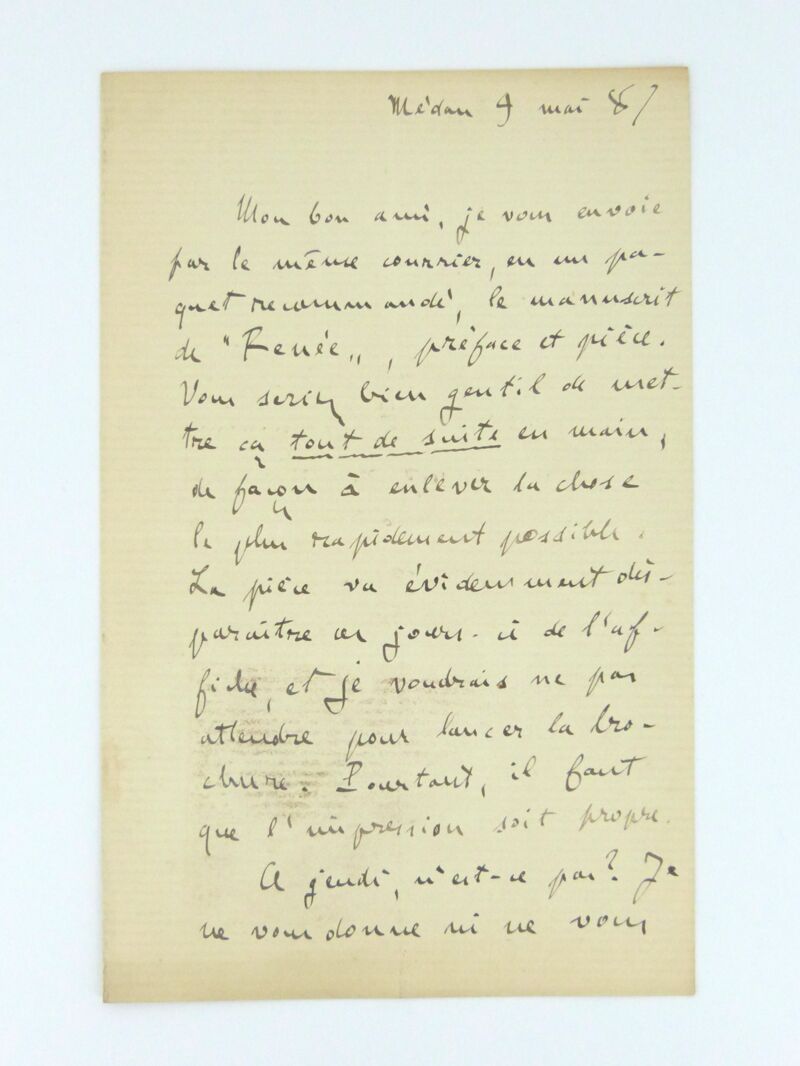 Médan 9 mai 87
Mon bon ami, je vous envoie
par le même courrier, en un pa-
quet recommandé, le manuscrit
de "Renée", préface et pièce.
Vous seriez bien gentil de met-
tre ça tout de suite en main,
de façon à enlever la chose
le plus rapidement possible.
La pièce va évidemment dis-
paraître ces jours-ci de l'af-
fiche, et je voudrais ne pas
attendre pour lancer la bro-
chure. Pourtant, il faut
que l'impression soit propre.
A jeudi, n'est-ce pas? Je
ne vous donne ni ne vous